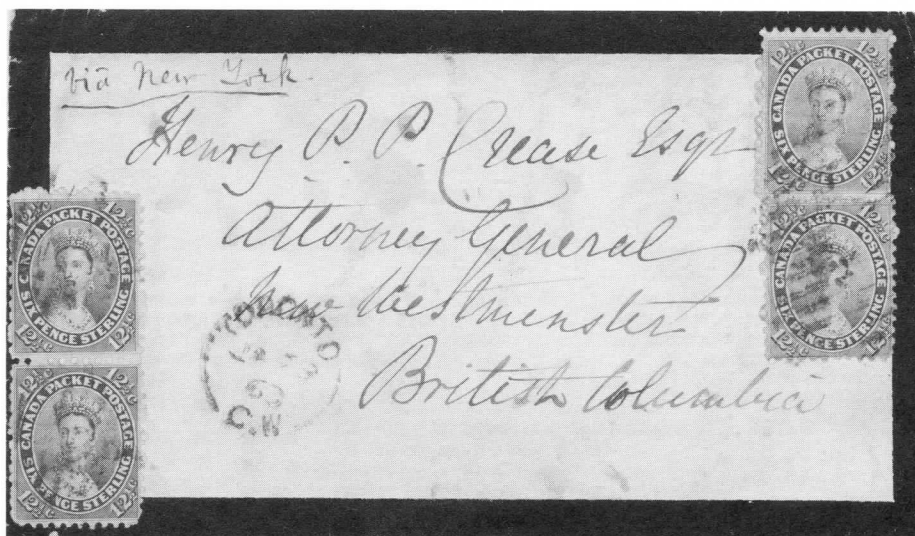 via New York.
Henry P. P. Crease Esqr
Attorney General
New Westminster
British Columbia
TORONTO
C.W
CANADA PACKET POSTAGE
SIX PENCE STERLING
12½c 12½c 12½c 12½c
CANADA PACKET POSTAGE
SIX PENCE STERLING
12½c 12½c 12½c 12½c
CANADA PACKET POSTAGE
SIX PENCE STERLING
12½c 12½c 12½c 12½c
CANADA PACKET POSTAGE
SIX PENCE STERLING
12½c 12½c 12½c 12½c